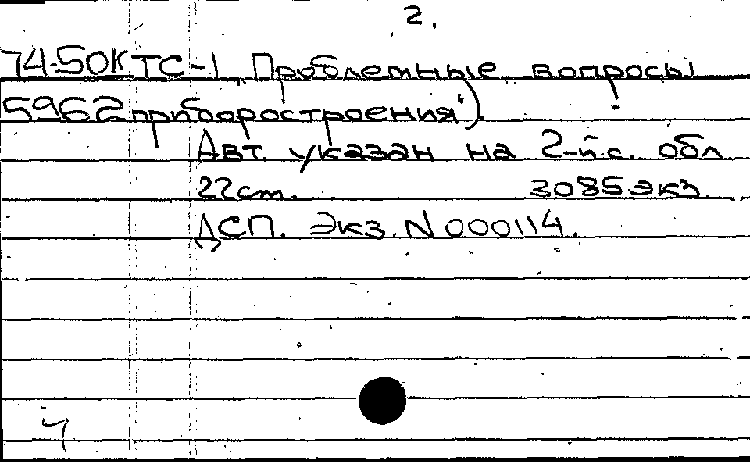 2.
74-50К ТС-1 Проблемные вопросы
5962 приборостроения").
Авт. указан на 2-й с. обл.
22 см. 3085 экз.
ДСП. Экз. N 000114.